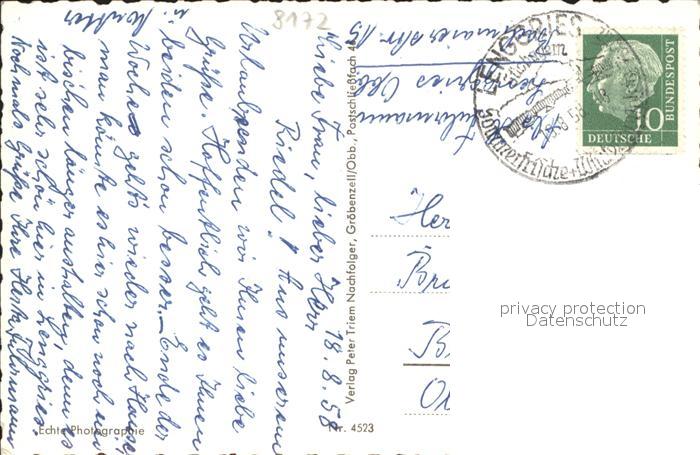 8172
18. 8. 58
Liebe Frau, lieber Herr
Riedel! Aus unserem
Urlaub senden wir Ihnen liebe
Grüße. Hoffentlich geht es Ihnen
beiden schon besser. Ende der
Woche geht's wieder nach Hause,
man könnte es hier schon noch ein
bischen länger aushalten, denn es
ist sehr schön hier in Lenggries.
Nochmals Grüße Ihre Herta
u. Mutter
Lenggries Obb.
Verlag Peter Triem Nachfolger, Gröbenzell/Obb., Postschließfach 4
LENGGRIES
Sommerfrische + Winter
58
10
DEUTSCHE
BUNDESPOST
privacy protection
Datenschutz
Echte Photographie
Nr. 4523